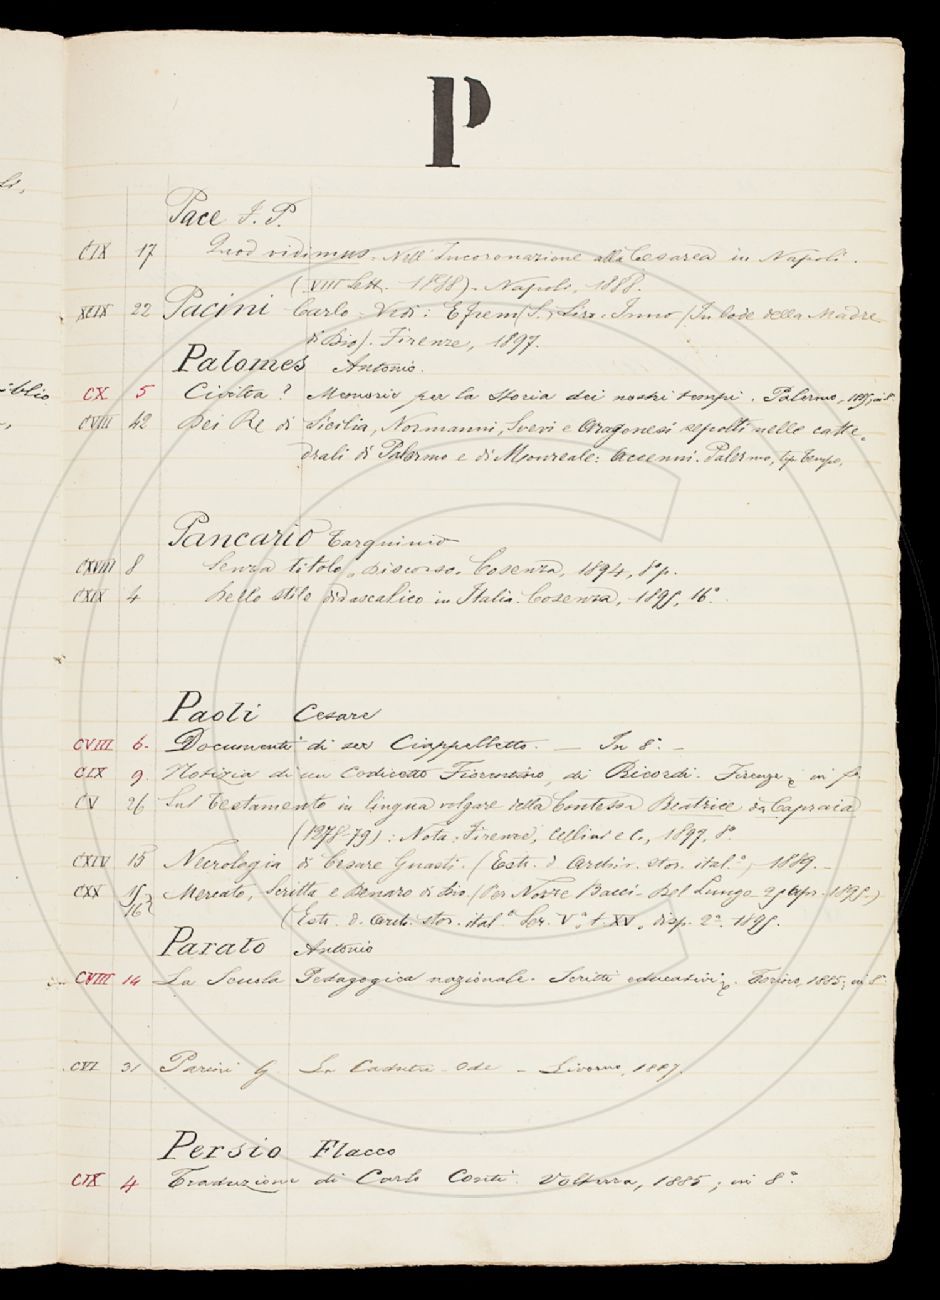 P
Pace J. P.
CIX 17 Quod vidimus. Nell' Incoronazione alla Cesarea in Napoli.
(VIII Sett. 1898). Napoli, 1888.
XCIX 22 Pacini Carlo. Vedi: Efrem (S.) Siro. Inno (In lode della Madre
di Dio). Firenze, 1897.
Palomes Antonio.
CX 5 Civiltà? Memorie per la storia dei nostri tempi. Palermo, in 8°
CVIII 42 Dei Re di Sicilia, Normanni, Svevi e Aragonesi sepolti nelle catte-
drali di Palermo e di Monreale: Accenni. Palermo, tip. Tempo,
Pancario Tarquinio
CXVIII 8 Senza titolo. Discorso. Cosenza, 1894, 8° p.
CXIX 4 Dello stile didascalico in Italia. Cosenza, 1895, 16°.
Paoli Cesare
CVIII 6. Documenti di ser Ciappelletto. — In 8°. —
CIX 9. Notizia di un Codicetto Fiorentino, di Ricordi. Firenze in f°
CV 26 Sul Testamento in lingua volgare della Contessa Beatrice da Capraia
(1278-79): Nota. Firenze, Cellini e C., 1897, 8°.
CXIV 15 Necrologia di Cesare Guasti. (Estr. d. Archiv. stor. ital.°, 1889. —
CXX 15 16 Mercato, Scritta e Denaro di Dio (Per Nozze Bacci-Del Lungo 1895.)
(Estr. d. Arch. stor. ital.° Ser. V.ª t. XV, disp. 2ª. 1895.
Parato Antonio
CVIII 14 La Scuola Pedagogica nazionale. Scritti educativi. Torino, 1885; in 8°
CVI 31 Parini G La Caduta Ode — Livorno, 1887.
Persio Flacco
CIX 4 Traduzione di Carlo Conti. Volterra, 1885; in 8°.